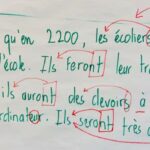 qu'en 2200, les écoliers
l'école. Ils feront leur tra
ils auront des devoirs à
ordinateur. Ils seront très